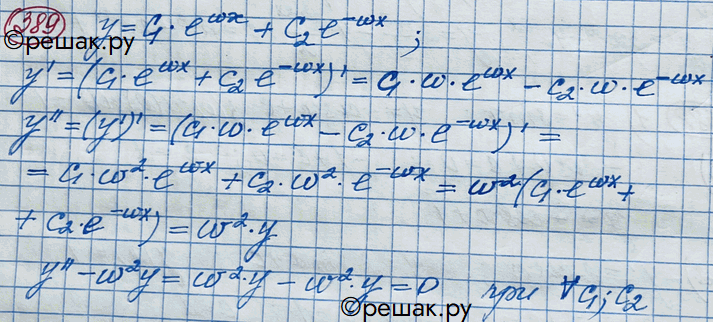 389 y = C₁·e^{ωx} + C₂e^{-ωx} ;
©решак.ру
y' = (C₁·e^{ωx} + C₂e^{-ωx})' = C₁·ω·e^{ωx} - C₂·ω·e^{-ωx}
y'' = (y')' = (C₁·ω·e^{ωx} - C₂·ω·e^{-ωx})' =
= C₁·ω²·e^{ωx} + C₂·ω²·e^{-ωx} = ω²(C₁·e^{ωx} +
+ C₂·e^{-ωx}) = ω²·y
y'' - ω²y = ω²·y - ω²·y = 0 при ∀ C₁; C₂
©решак.ру